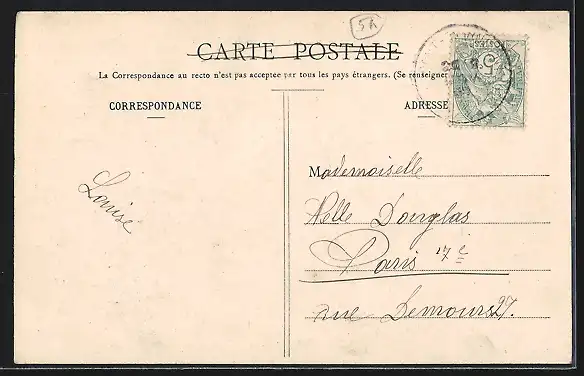 5A
CARTE POSTALE
La Correspondance au recto n'est pas acceptee par tous les pays étrangers. (Se renseigner
CORRESPONDANCE
ADRESSE
Louise
Mademoiselle
Nelle Douglas
Paris 17e
rue Demours 27.